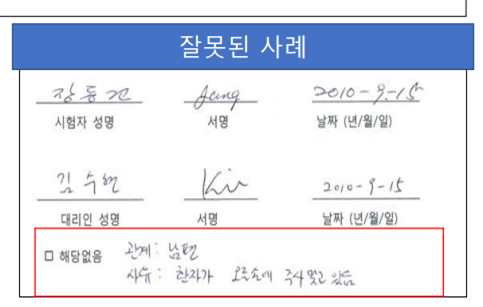 잘못된 사례
장동건 Jang 2010-9-15
시험자 성명 서명 날짜 (년/월/일)
김수현 Kim 2010-9-15
대리인 성명 서명 날짜 (년/월/일)
□ 해당없음 관계: 남편
사유: 환자가 오른손에 주사 맞고 있음